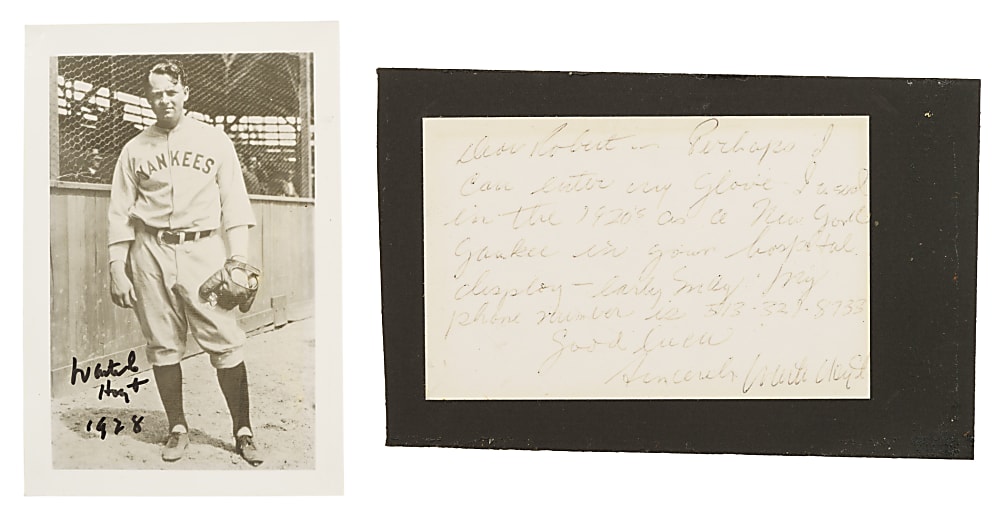 YANKEES
Waite
Hoyt
1928
Dear Robert - Perhaps I
can enter my glove I used
in the 1920's as a New York
Yankee in your hospital
display - early May. My
phone number is 513-321-8733
Good luck
Sincerely Waite Hoyt